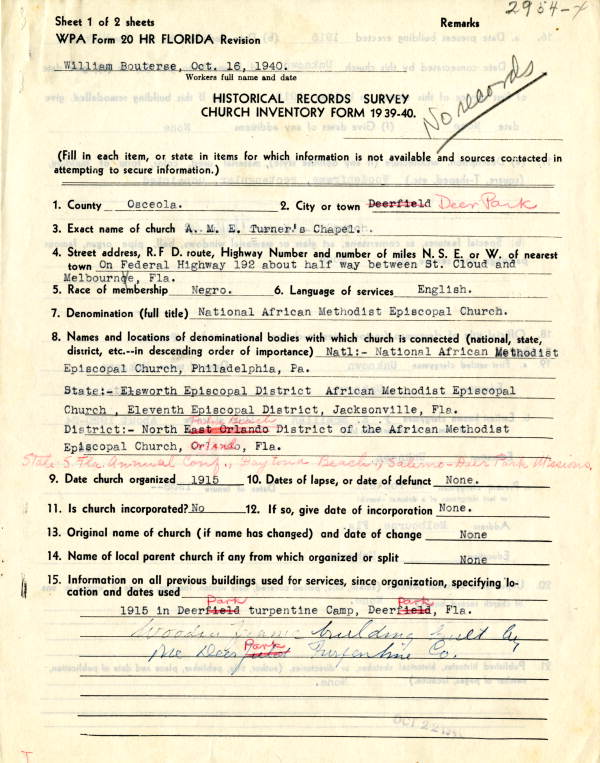 2954-X
Sheet 1 of 2 sheets
Remarks
WPA Form 20 HR FLORIDA Revision
William Bouterse, Oct. 16, 1940.
Workers full name and date
No records
HISTORICAL RECORDS SURVEY
CHURCH INVENTORY FORM 1939-40.
(Fill in each item, or state in items for which information is not available and sources contacted in
attempting to secure information.)
1. County Osceola. 2. City or town Deerfield Deer Park
3. Exact name of church A. M. E. Turner's Chapel.
4. Street address, R.F D. route, Highway Number and number of miles N. S. E. or W. of nearest
town On Federal Highway 192 about half way between St. Cloud and
Melbourne, Fla.
5. Race of membership Negro. 6. Language of services English.
7. Denomination (full title) National African Methodist Episcopal Church.
8. Names and locations of denominational bodies with which church is connected (national, state,
district, etc.--in descending order of importance) Natl:- National African Methodist
Episcopal Church, Philadelphia, Pa.
State:- Elsworth Episcopal District African Methodist Episcopal
Church , Eleventh Episcopal District, Jacksonville, Fla.
Beach
District:- North East Orlando District of the African Methodist
Episcopal Church, Orlando, Fla.
State: S. Fla. Annual Conf., Daytona Beach, Salerno-Deer Park Missions,
9. Date church organized 1915 10. Dates of lapse, or date of defunct None.
11. Is church incorporated? No 12. If so, give date of incorporation None.
13. Original name of church (if name has changed) and date of change None
14. Name of local parent church if any from which organized or split None
15. Information on all previous buildings used for services, since organization, specifying lo-
cation and dates used
Park Park
1915 in Deerfield turpentine Camp, Deerfield, Fla.
Wooden frame building built by
Park
the Deerfield Turpentine Co.
OCT 22 1940